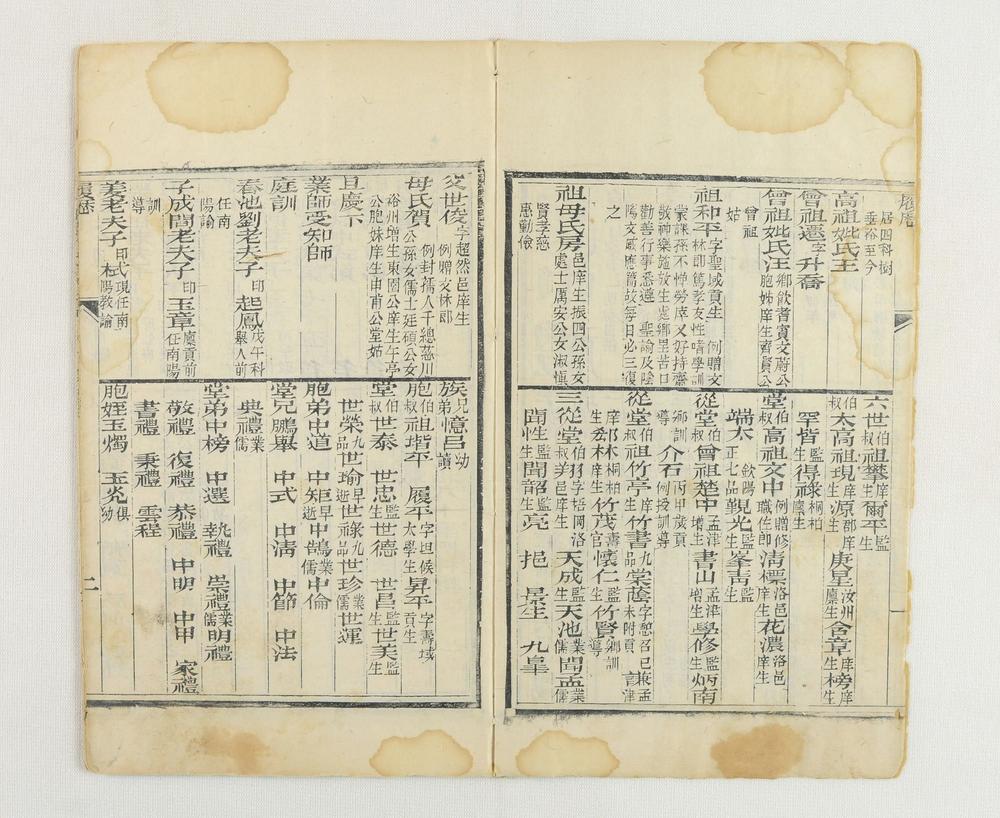 履歷
居四科樹
垂裕至今
高祖妣氏王
曾祖還字升喬
曾祖妣氏汪鄉飲耆賓文蔚公
胞姊庠生齊賢公
曾祖
姑
祖和平字聖域貢生 例贈文
林郎篤孝友性嗜學訓
蒙課孫不憚勞瘁又好持齋
敬神樂施放生處鄉里苦口
勸善行事悉遵 聖諭及陰
隲文感應篇故每日必三復
之
祖母氏房邑庠生振四公孫女
處士厲安公女淑慎
賢孝慈
惠勤儉
六世伯叔祖攀庠生爾平監生
伯叔太高祖現庠生源郡庠生 庚星汝州廩生含章庠生榜庠生
罕皆監生得祿桐柏廩生
堂伯叔高祖文中例贈修職佐郎清標洛邑庠生花濃洛邑庠生
端太飲陽正七品觐光監生峯靑監生
從堂伯叔曾祖楚中孟津增生書山孟津增生學修監生炳南
鄉訓導介石丙甲歲貢例授訓導
從堂伯叔祖竹亭庠生竹書九品棠蔭字憩召已未附貢謙孟津
庠生郁林桐柏庠生竹茂鄉官懷仁監生竹賢鄉訓導
三從堂伯叔羽字梧岡洛邑庠生 天成監生天池業儒聞孟業儒
聞性監生聞韶監生亮 挹 景生 九皐
父世俊字超然邑庠生
例贈文林郎
母氏賀 例封孺人千總慈川
公孫女儒士廷碩公女
裕州增生東園公庠生午亭
公胞妹庠生由甫公堂姊
具慶下
業師受知師
庭訓
春池劉老夫子印起鳳戊午科舉人前
任南
陽諭
子成閻老夫子印玉章廩貢前任南陽
訓
導
姜老夫子印式栻現任南陽教諭
履歷
族兄弟憶呂幼讀
胞伯叔祖堦平 履平字坦候太學生昇平字壽域貢生
堂伯叔世泰 世忠監生世德 世昌監生世美監生
世榮九品世瑜早逝世祿九品世珍業儒世運
胞弟中道 中矩早逝中鵠業儒中倫
堂兄鵬舉 中式 中淸 中節 中法
典禮業儒
堂弟中榜 中選 執禮 崇禮業儒明禮
敬禮 復禮 恭禮 中明 中甲 家禮
書禮 秉禮 雲程
胞姪玉燭 玉炎俱幼
二